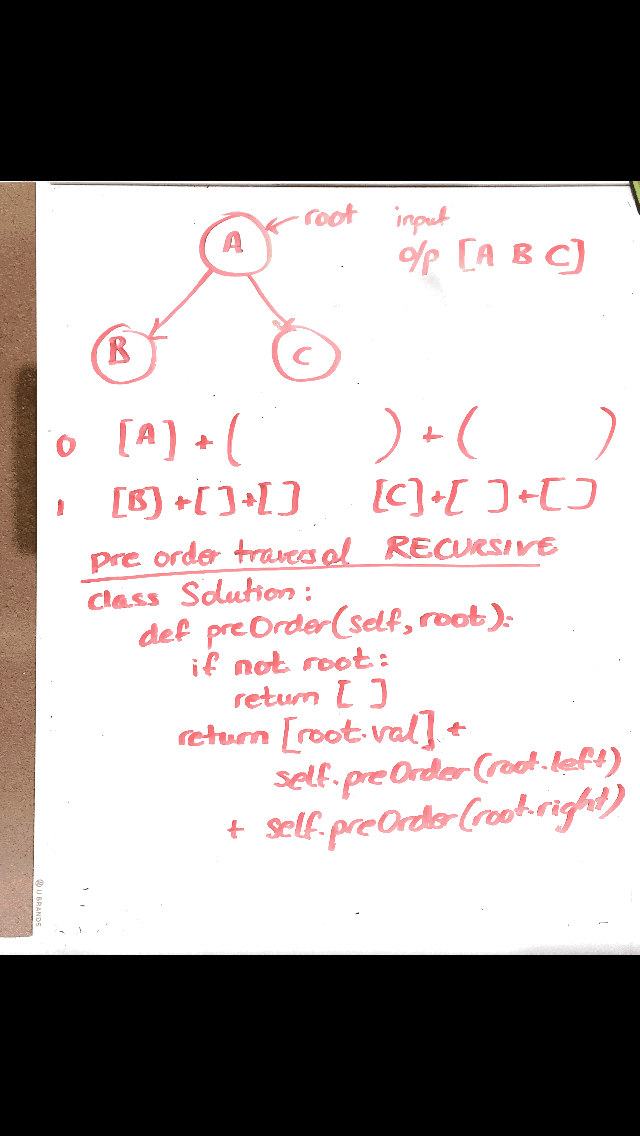 root input
A o/p [A B C]
B C
0 [A] + ( ) + ( )
1 [B] + [ ] + [ ] [C] + [ ] + [ ]
pre order traversal RECURSIVE
class Solution:
def preOrder(self, root):
if not root:
return [ ]
return [root.val] +
self.preOrder(root.left)
+ self.preOrder(root.right)
U BRANDS